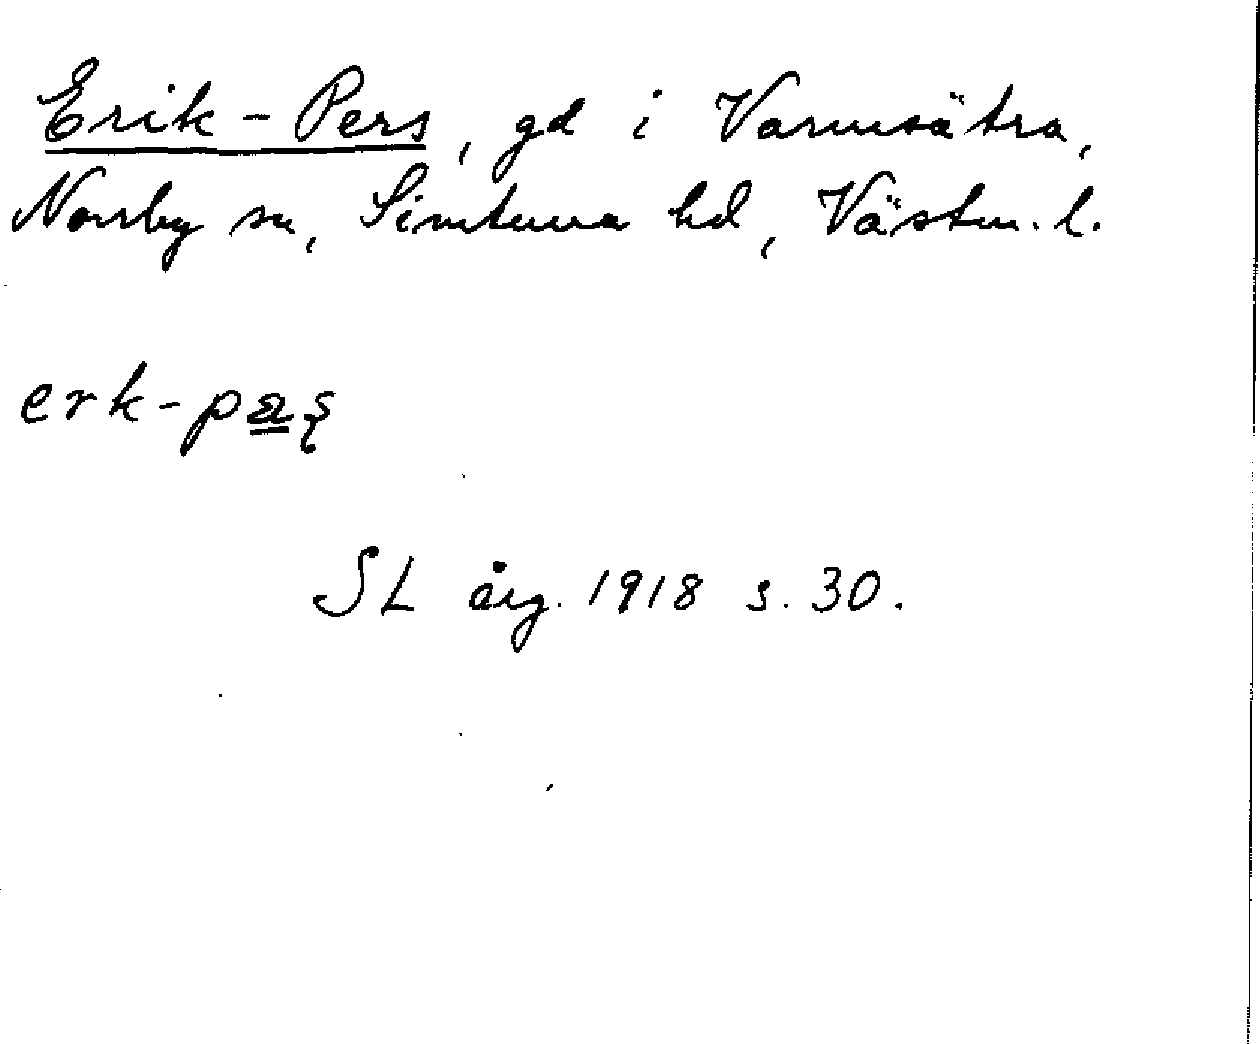 Erik-Pers, gd i Varmsätra,
Norrby sn, Simtuna hd, Västm. l.
erk-pas̨
SL årg. 1918 s. 30.